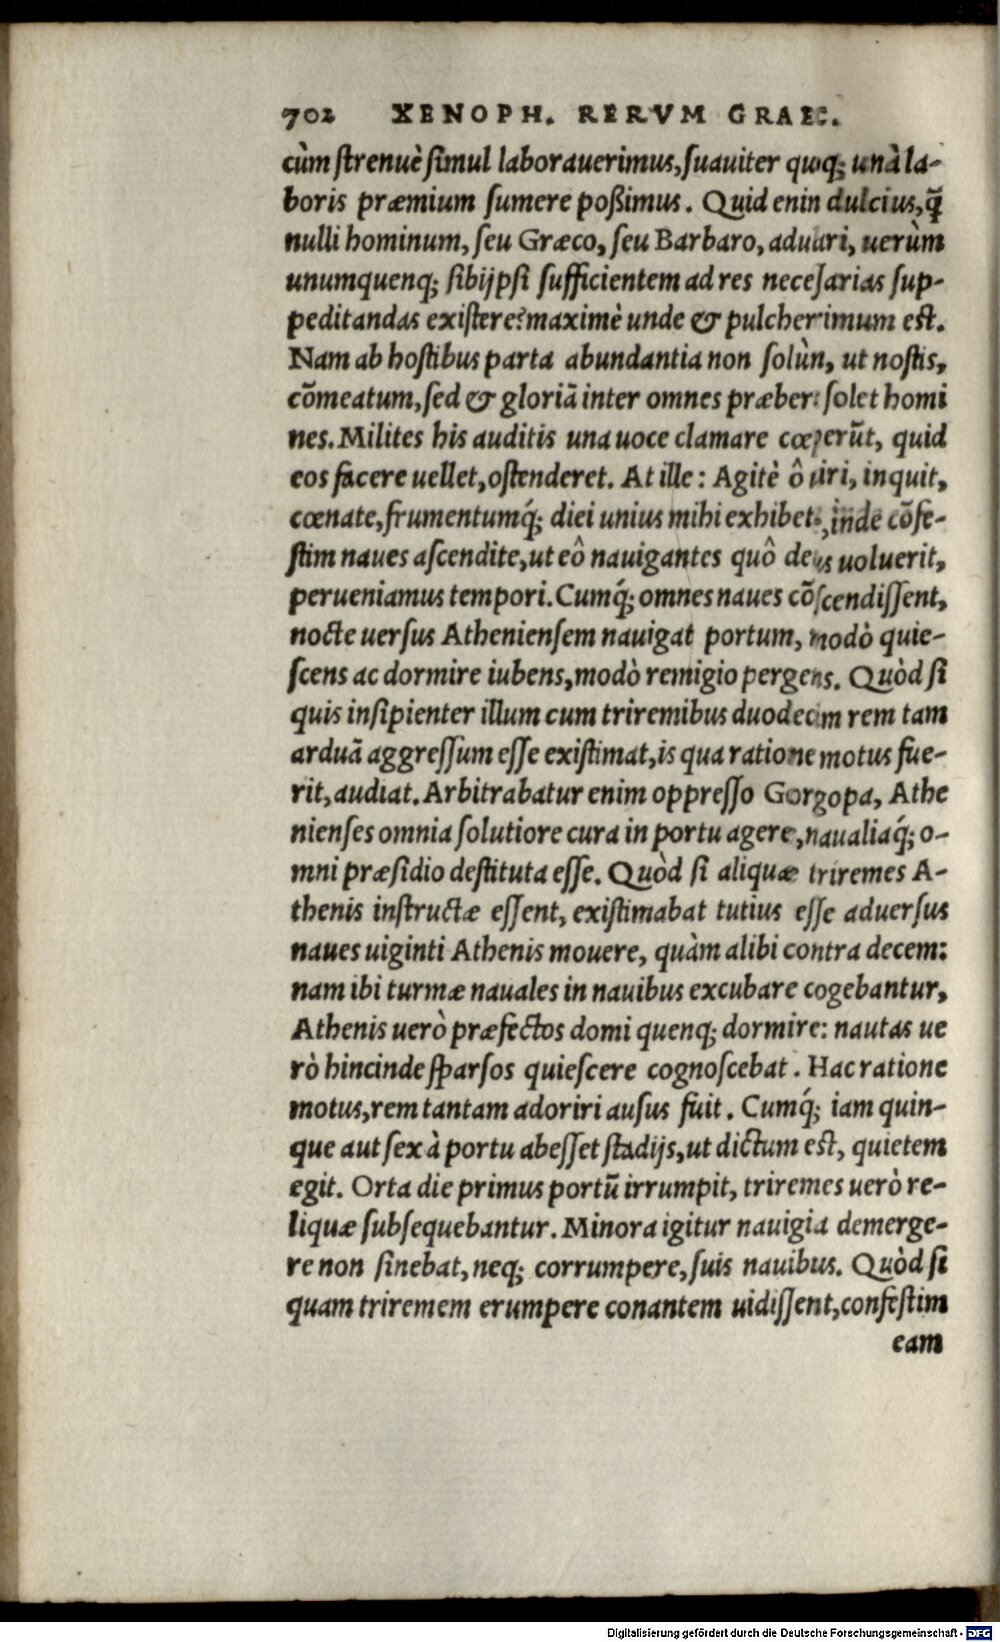 702 XENOPH. RERVM GRAEC.
cùm ſtrenuè ſimul laborauerimus, ſuauiter quoq; unà la-
boris præmium ſumere poßimus. Quid enin dulcius, q̃
nulli hominum, ſeu Græco, ſeu Barbaro, adulari, uerùm
unumquenq; ſibijpſi ſufficientem ad res neceſſarias ſup-
peditandas exiſtere? maximè unde & pulcherrimum eſt.
Nam ab hoſtibus parta abundantia non ſolùm, ut noſtis,
cõmeatum, ſed & gloriã inter omnes præbere ſolet homi
nes. Milites his auditis una uoce clamare cœperũt, quid
eos facere uellet, oſtenderet. At ille: Agitè ô uiri, inquit,
cœnate, frumentumq́; diei unius mihi exhibete, inde cõfe-
ſtim naues aſcendite, ut eô nauigantes quô deus uoluerit,
perueniamus tempori. Cumq́; omnes naues cõſcendiſſent,
nocte uerſus Athenienſem nauigat portum, modò quie-
ſcens ac dormire iubens, modò remigio pergens. Quòd ſi
quis inſipienter illum cum triremibus duodecim rem tam
arduã aggreſſum eſſe exiſtimat, is qua ratione motus fue-
rit, audiat. Arbitrabatur enim oppreſſo Gorgopa, Athe
nienſes omnia ſolutiore cura in portu agere, naualiaq́; o-
mni præſidio deſtituta eſſe. Quòd ſi aliquæ triremes A-
thenis inſtructæ eſſent, exiſtimabat tutius eſſe aduerſus
naues uiginti Athenis mouere, quàm alibi contra decem:
nam ibi turmæ nauales in nauibus excubare cogebantur,
Athenis uerò præfectos domi quenq; dormire: nautas ue
rò hincinde ſparſos quieſcere cognoſcebat. Hac ratione
motus, rem tantam adoriri auſus fuit. Cumq́; iam quin-
que aut ſex à portu abeſſet ſtadijs, ut dictum eſt, quietem
egit. Orta die primus portũ irrumpit, triremes uerò re-
liquæ ſubſequebantur. Minora igitur nauigia demerge-
re non ſinebat, neq; corrumpere, ſuis nauibus. Quòd ſi
quam triremem erumpere conantem uidiſſent, confeſtim
eam
Digitalisierung gefördert durch die Deutsche Forschungsgemeinschaft - DFG